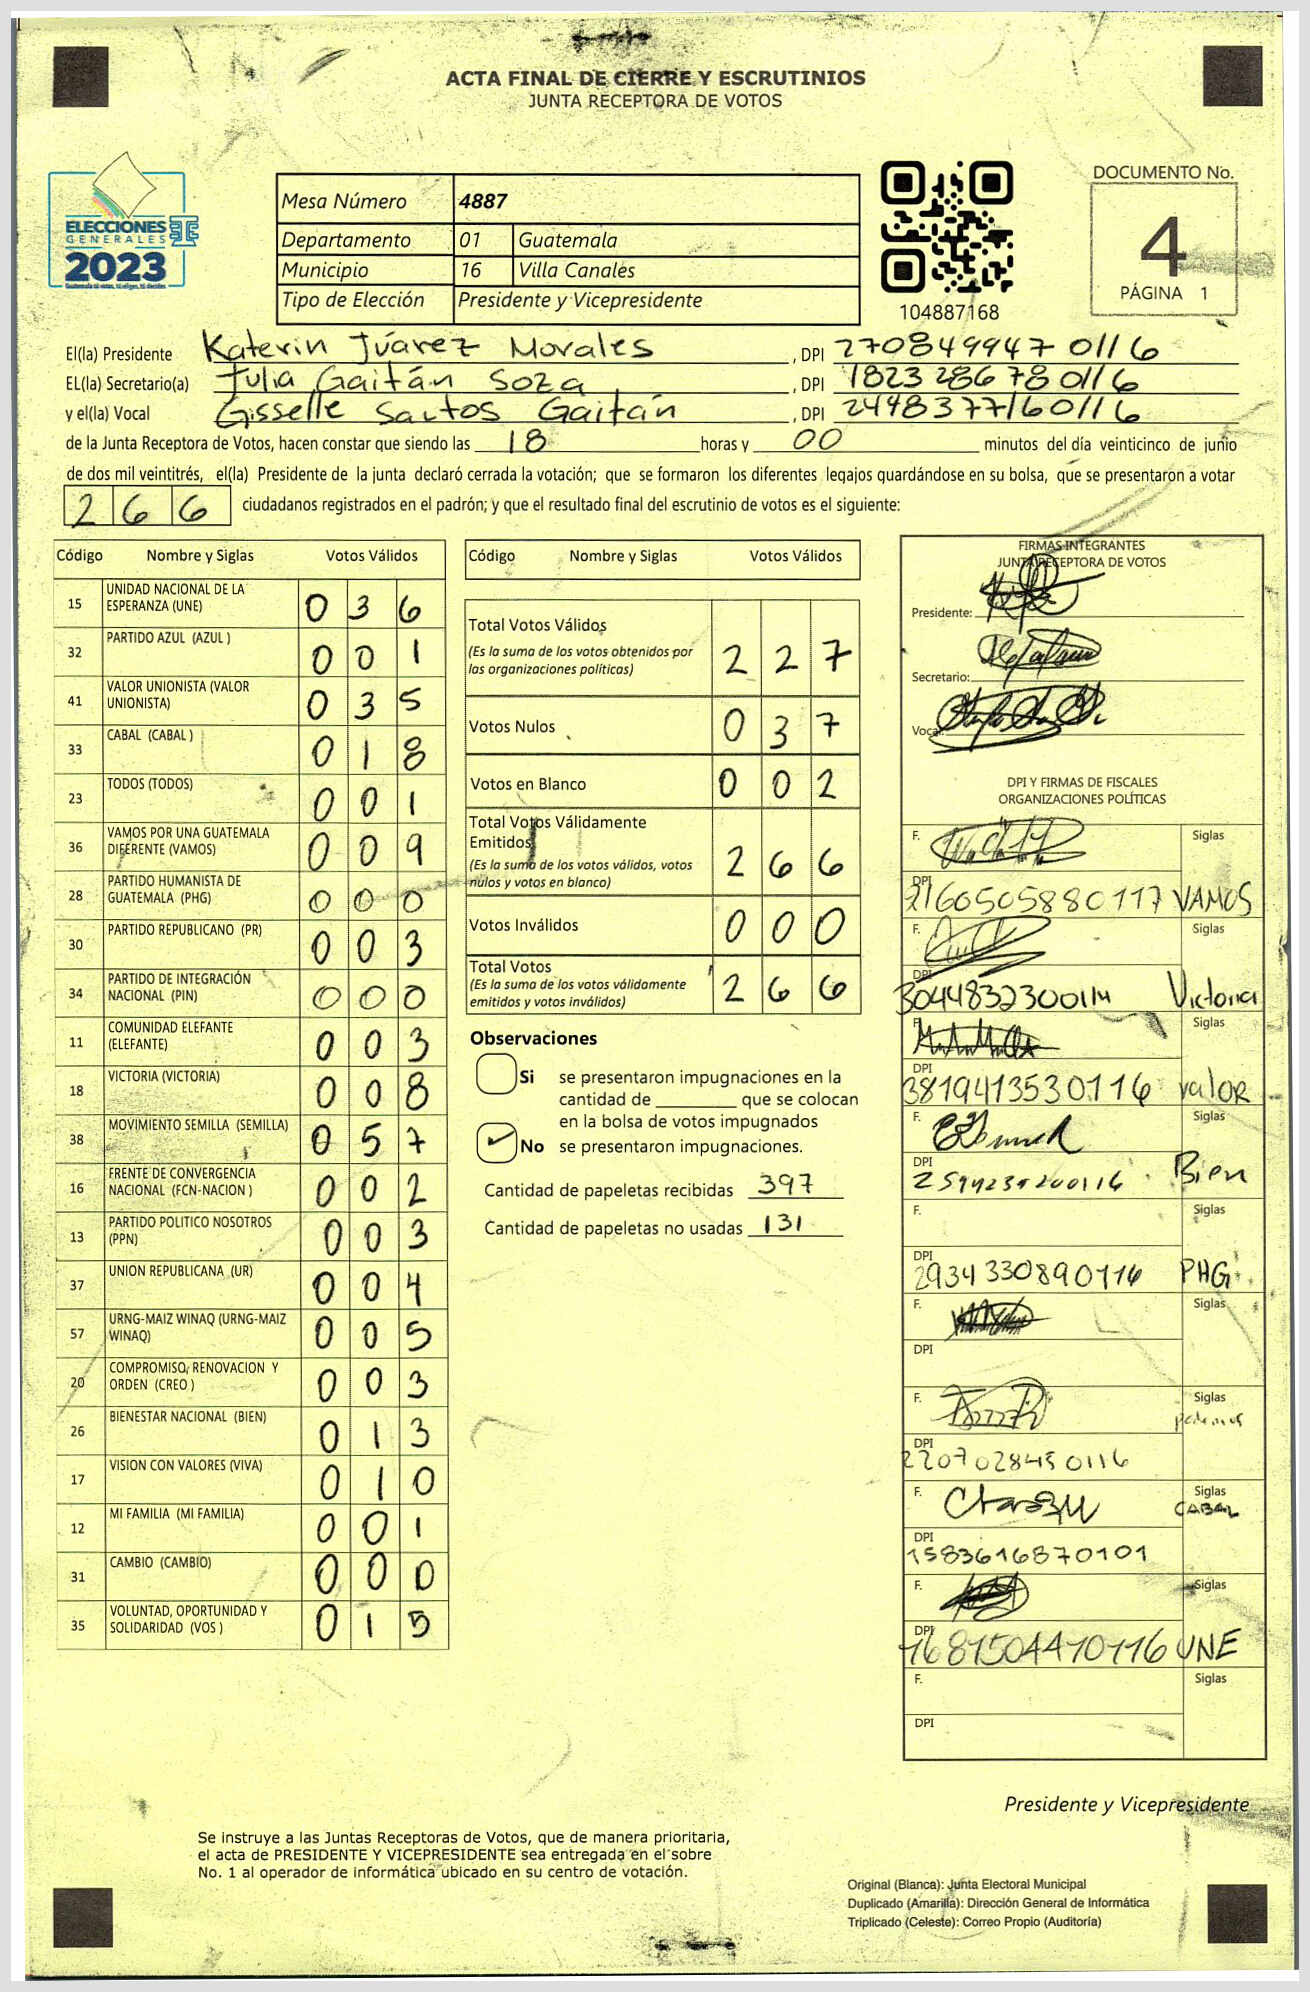 ACTA FINAL DE CIERRE Y ESCRUTINIOS
JUNTA RECEPTORA DE VOTOS
ELECCIONES
GENERALES
2023
Mesa Número 4887
Departamento 01 Guatemala
Municipio 16 Villa Canales
Tipo de Elección Presidente y Vicepresidente
104887168
DOCUMENTO No.
4
PÁGINA 1
El(la) Presidente Katerin Júarez Morales , DPI 270849947 0116
EL(la) Secretario(a) Julia Gaitán Soza , DPI 1823 286 78 0116
y el(la) Vocal Gisselle Santos Gaitán , DPI 2448377160116
de la Junta Receptora de Votos, hacen constar que siendo las 18 horas y 00 minutos del día veinticinco de junio
de dos mil veintitrés, el(la) Presidente de la junta declaró cerrada la votación; que se formaron los diferentes legajos guardándose en su bolsa, que se presentaron a votar
266 ciudadanos registrados en el padrón; y que el resultado final del escrutinio de votos es el siguiente:
Código Nombre y Siglas Votos Válidos
15 UNIDAD NACIONAL DE LA ESPERANZA (UNE) 0 3 6
32 PARTIDO AZUL (AZUL ) 0 0 1
41 VALOR UNIONISTA (VALOR UNIONISTA) 0 3 5
33 CABAL (CABAL ) 0 1 8
23 TODOS (TODOS) 0 0 1
36 VAMOS POR UNA GUATEMALA DIFERENTE (VAMOS) 0 0 9
28 PARTIDO HUMANISTA DE GUATEMALA (PHG) 0 0 0
30 PARTIDO REPUBLICANO (PR) 0 0 3
34 PARTIDO DE INTEGRACIÓN NACIONAL (PIN) 0 0 0
11 COMUNIDAD ELEFANTE (ELEFANTE) 0 0 3
18 VICTORIA (VICTORIA) 0 0 8
38 MOVIMIENTO SEMILLA (SEMILLA) 0 5 7
16 FRENTE DE CONVERGENCIA NACIONAL (FCN-NACION ) 0 0 2
13 PARTIDO POLITICO NOSOTROS (PPN) 0 0 3
37 UNION REPUBLICANA (UR) 0 0 4
57 URNG-MAIZ WINAQ (URNG-MAIZ WINAQ) 0 0 5
20 COMPROMISO, RENOVACION Y ORDEN (CREO ) 0 0 3
26 BIENESTAR NACIONAL (BIEN) 0 1 3
17 VISION CON VALORES (VIVA) 0 1 0
12 MI FAMILIA (MI FAMILIA) 0 0 1
31 CAMBIO (CAMBIO) 0 0 0
35 VOLUNTAD, OPORTUNIDAD Y SOLIDARIDAD (VOS ) 0 1 5
Código Nombre y Siglas Votos Válidos
Total Votos Válidos 2 2 7
(Es la suma de los votos obtenidos por
las organizaciones políticas)
Votos Nulos 0 3 7
Votos en Blanco 0 0 2
Total Votos Válidamente
Emitidos 2 6 6
(Es la suma de los votos válidos, votos
nulos y votos en blanco)
Votos Inválidos 0 0 0
Total Votos 2 6 6
(Es la suma de los votos válidamente
emitidos y votos inválidos)
Observaciones
Si se presentaron impugnaciones en la
cantidad de ________ que se colocan
en la bolsa de votos impugnados
No se presentaron impugnaciones.
Cantidad de papeletas recibidas 397
Cantidad de papeletas no usadas 131
FIRMAS INTEGRANTES
JUNTA RECEPTORA DE VOTOS
Presidente:
Secretario:
Vocal:
DPI Y FIRMAS DE FISCALES
ORGANIZACIONES POLÍTICAS
F. Siglas
DPI 2160505880117 VAMOS
F. Siglas
DPI Victoria
F. Siglas
DPI 3819413530116 valor
F. Siglas
DPI Bien
F. Siglas
DPI 2934330890116 PHG
F. Siglas
DPI
F. Siglas
podemos
DPI 2207028450116
F. Siglas
CABAL
DPI 1583616870101
F. Siglas
DPI 1681504410116 UNE
F. Siglas
DPI
Presidente y Vicepresidente
Se instruye a las Juntas Receptoras de Votos, que de manera prioritaria,
el acta de PRESIDENTE Y VICEPRESIDENTE sea entregada en el sobre
No. 1 al operador de informática ubicado en su centro de votación.
Original (Blanca): Junta Electoral Municipal
Duplicado (Amarilla): Dirección General de Informática
Triplicado (Celeste): Correo Propio (Auditoría)